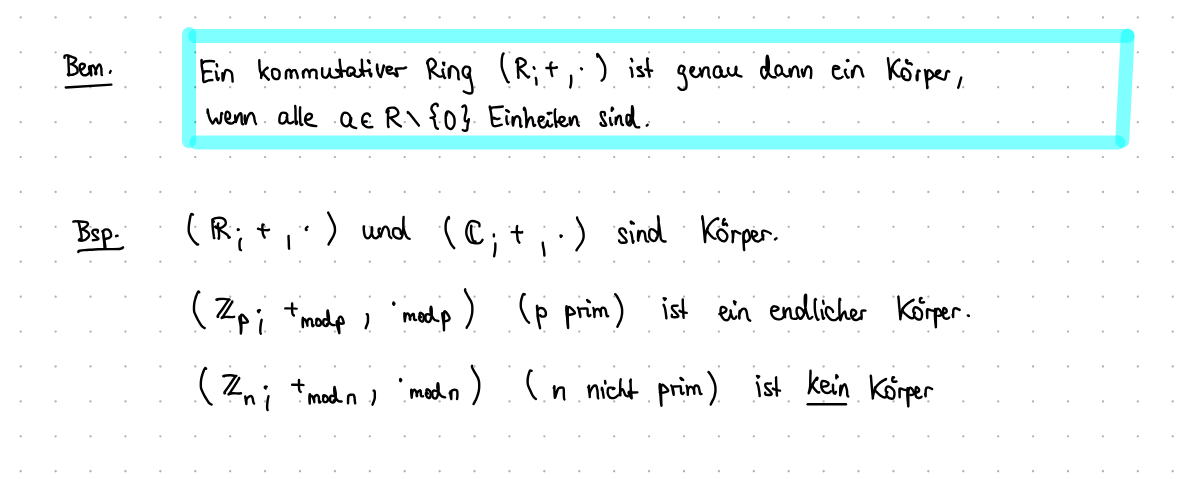 Bem. Ein kommutativer Ring (R; +, ·) ist genau dann ein Körper,
wenn alle a ∈ R \ {0} Einheiten sind.
Bsp. (ℝ; +, ·) und (ℂ; +, ·) sind Körper.
(ℤₚ; +mod p, ·mod p) (p prim) ist ein endlicher Körper.
(ℤₙ; +mod n, ·mod n) (n nicht prim) ist kein Körper